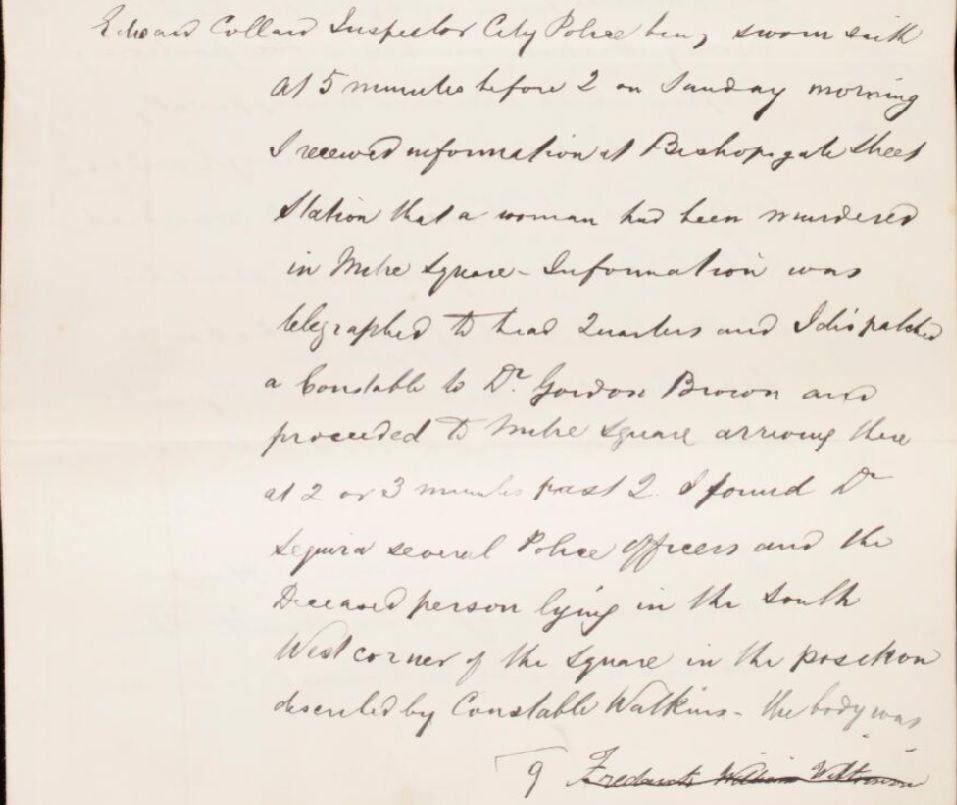 Edward Collard Inspector City Police being sworn saith
At 5 minutes before 2 on Sunday morning
I received information at Bishopsgate Street
Station that a woman had been murdered
in Mitre Square - Information was
telegraphed to head Quarters and I dispatched
a Constable to Dr. Gordon Brown and
proceeded to Mitre Square arriving there
at 2 or 3 minutes past 2. I found Dr
Sequira several Police Officers and the
Deceased person lying in the South
West corner of the Square in the position
described by Constable Watkins - the body was
9 Frederick William Wilkinson